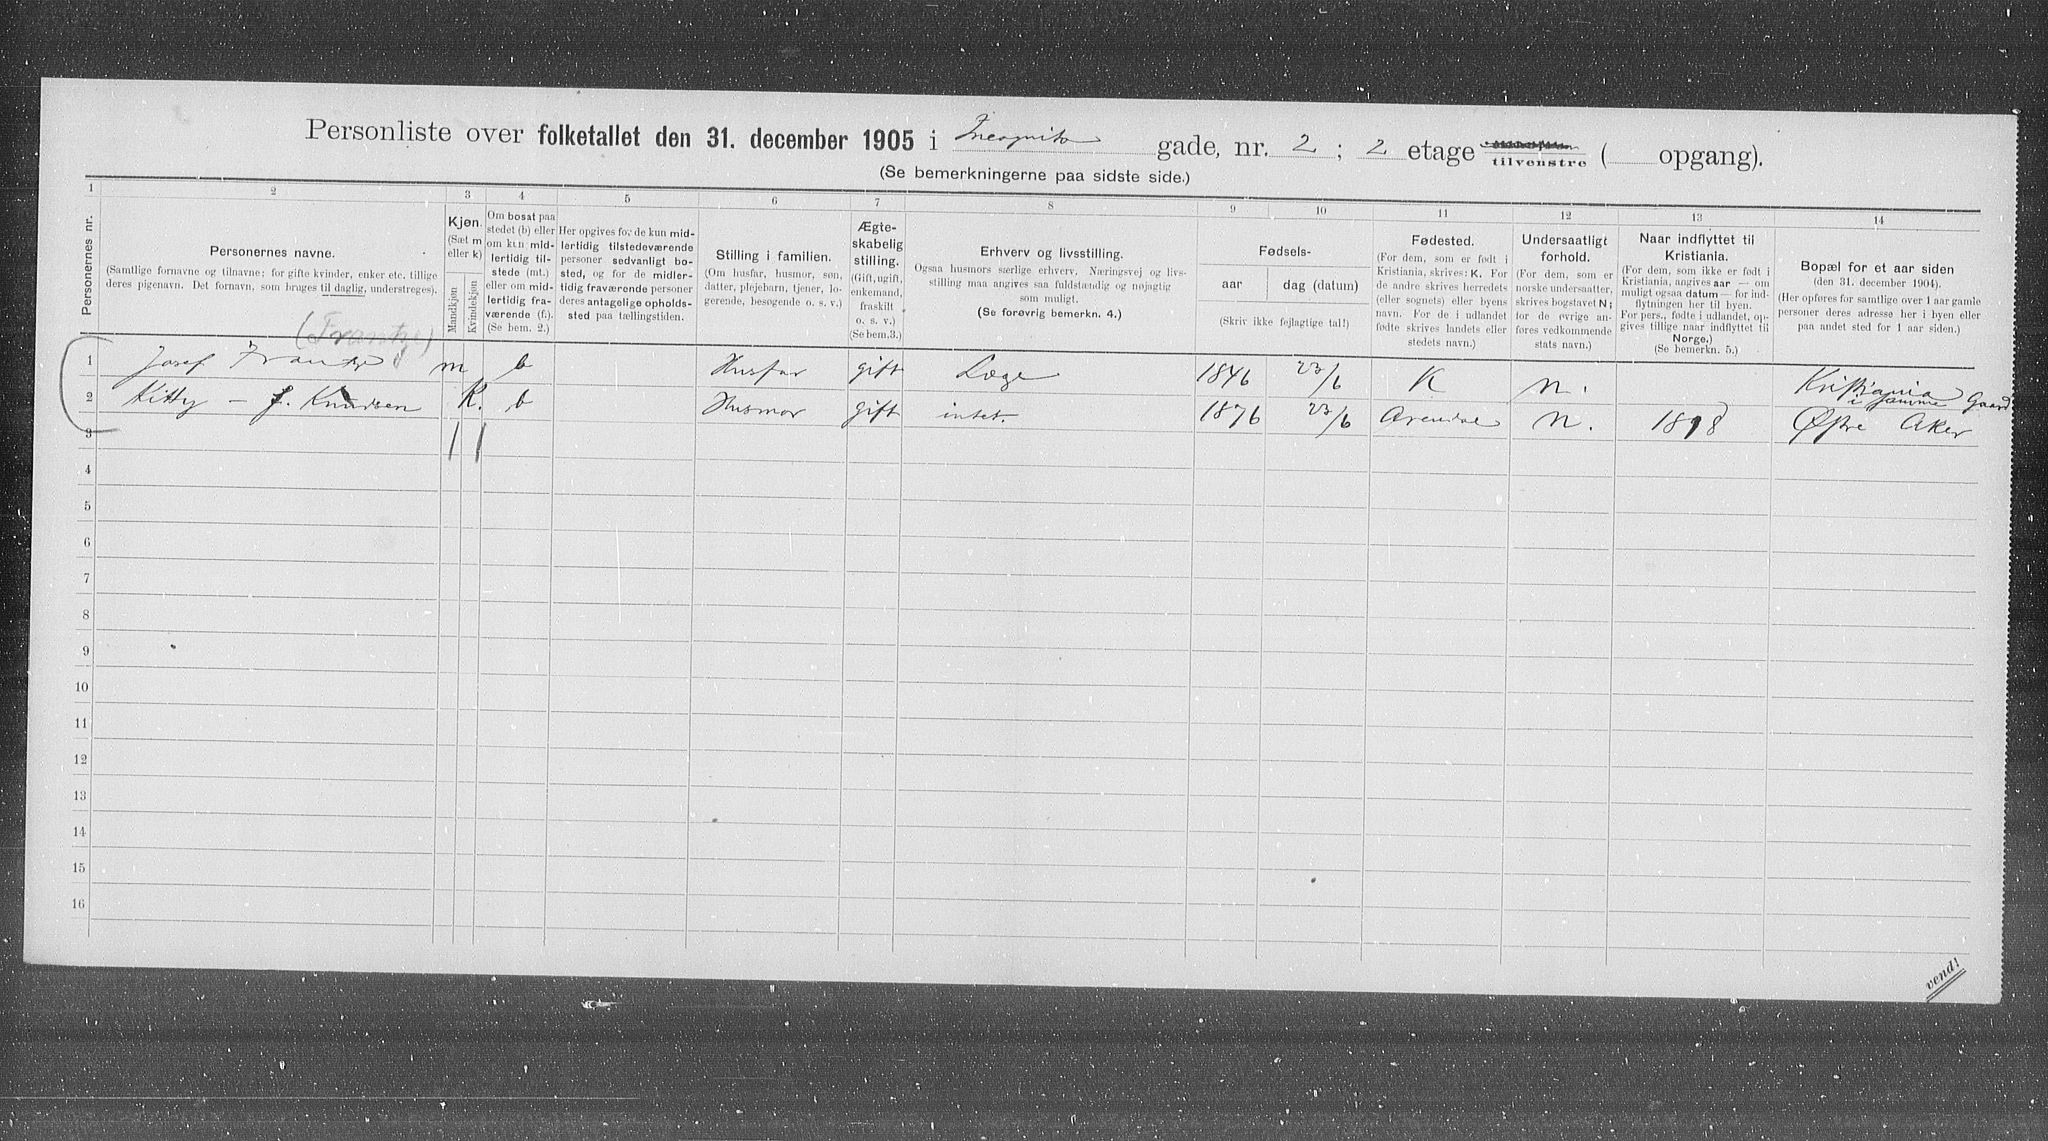 Personliste over folketallet den 31. december 1905 i Incognito gade, nr. 2 ; 2 etage tilvenstre ( opgang).
(Se bemerkningerne paa sidste side.)
1 2 3 4 5 6 7 8 9 10 11 12 13 14
Personernes nr.
Personernes navne.
(Samtlige fornavne og tilnavne; for gifte kvinder, enker etc. tillige
deres pigenavn. Det fornavn, som bruges til daglig, understreges).
Kjøn.
(Sæt m
eller k)
Mandkjøn
Kvindekjøn
Om bosat paa
stedet (b) eller
om kun mid-
lertidig til-
stede (mt.)
eller om mid-
lertidig fra-
værende (f.).
(Se bem. 2.)
Her opgives for de kun mid-
lertidig tilstedeværende
personer sedvanlig bo-
sted, og for de midler-
tidig fraværende personer
deres antagelige opholds-
sted paa tællingstiden.
Stilling i familien.
(Om husfar, husmor, søn,
datter, plejebarn, tjener, lo-
gerende, besøgende o. s. v.)
Ægte-
skabelig
stilling.
(Gift, ugift,
enkemand,
fraskilt
o. s. v.)
(Se bem. 3.)
Erhverv og livsstilling.
Ogsaa husmors særlige erhverv. Næringsvej og livs-
stilling maa angives saa fuldstændig og nøjagtig
som muligt.
(Se forøvrig bemerkn. 4.)
Fødsels-
aar
dag (datum)
(Skriv ikke fejlagtige tal!)
Fødested.
(For dem, som er født i
Kristiania, skrives: K. For
de andre skrives herredets
(eller sognets) eller byens
navn. For de i udlandet
fødte skrives landets eller
stedets navn.)
Undersaatligt
forhold.
(For dem, som er
norske undersaatter,
skrives bogstavet N;
for de øvrige an-
føres vedkommende
stats navn.)
Naar indflyttet til
Kristiania.
(For dem, som ikke er født i
Kristiania, angives aar — om
muligt ogsaa datum — for ind-
flytningen her til byen.
For pers., fødte i udlandet, op-
gives tillige naar indflyttet til
Norge.)
(Se bemerkn. 5.)
Bopæl for et aar siden
(den 31. december 1904).
(Her opføres for samtlige over 1 aar gamle
personer deres adresse her i byen eller
paa andet sted for 1 aar siden.)
(Frantze)
1 Josef Frantze m b Husfar gift Læge 1846 23/6 K N. Kristiania i samme Gaard
2 Kitty — f. Knudsen K. b Husmor gift intet. 1876 23/6 Arendal N. 1898 Østre Aker
3
4
5
6
7
8
9
10
11
12
13
14
15
16
vend!